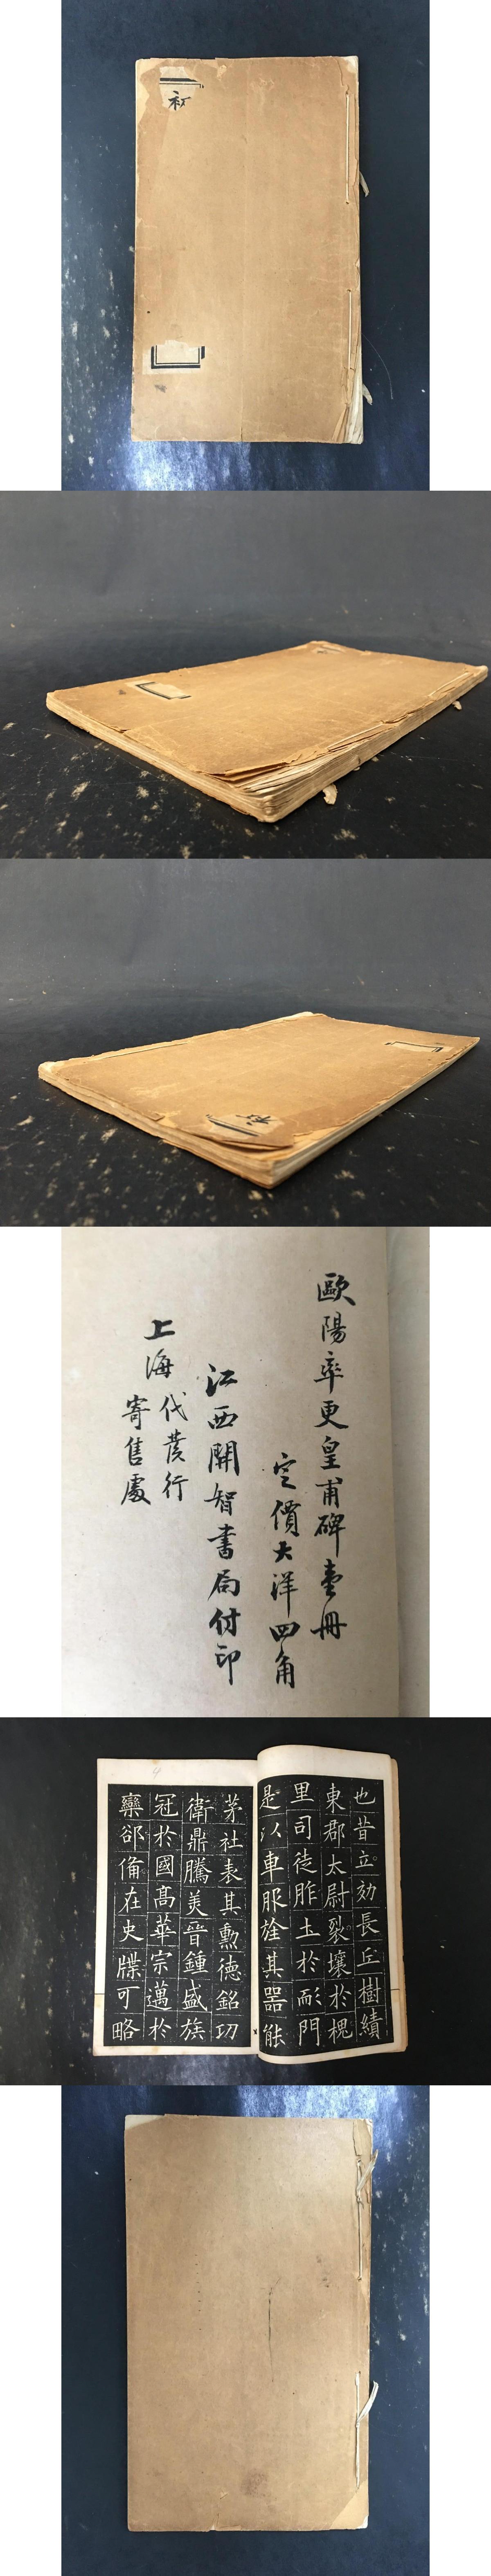 歐陽率更皇甫碑壹冊
定價大洋四角
江西開智書局付印
上海代發行
寄售處
也昔立効長丘樹績
東郡太尉裂壤於槐
里司徒胙土於耏門
是以車服旌其器能
茅社表其勳德銘功
衛鼎騰美晉鍾盛族
冠於國高華宗邁於
欒郤備在史牒可略